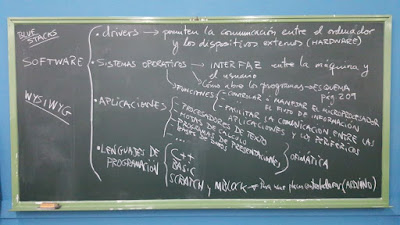 BLUE STACKS
· drivers → permiten la comunicación entre el ordenador
y los dispositivos externos (HARDWARE)
SOFTWARE
· SISTEMAS OPERATIVOS → INTERFAZ entre la máquina y
el usuario
→ Cómo abro los programas → ESQUEMA
pág 209
FUNCIONES - CONTROLAR Y MANEJAR EL MICROPROCESADOR
EL FLUJO DE INFORMACIÓN
- FACILITAR LA COMUNICACIÓN ENTRE LAS
APLICACIONES Y LOS PERIFÉRICOS
WYSIWYG
· APLICACIONES
- PROCESADORES DE TEXTO
- HOJAS DE CÁLCULO
- PROGRAMAS DE PRESENTACIONES
- BASES DE DATOS
...
OFIMÁTICA
· LENGUAJES DE
PROGRAMACIÓN
C++
BASIC
SCRATCH, MBLOCK → Para una placa controladora (ARDUINO)